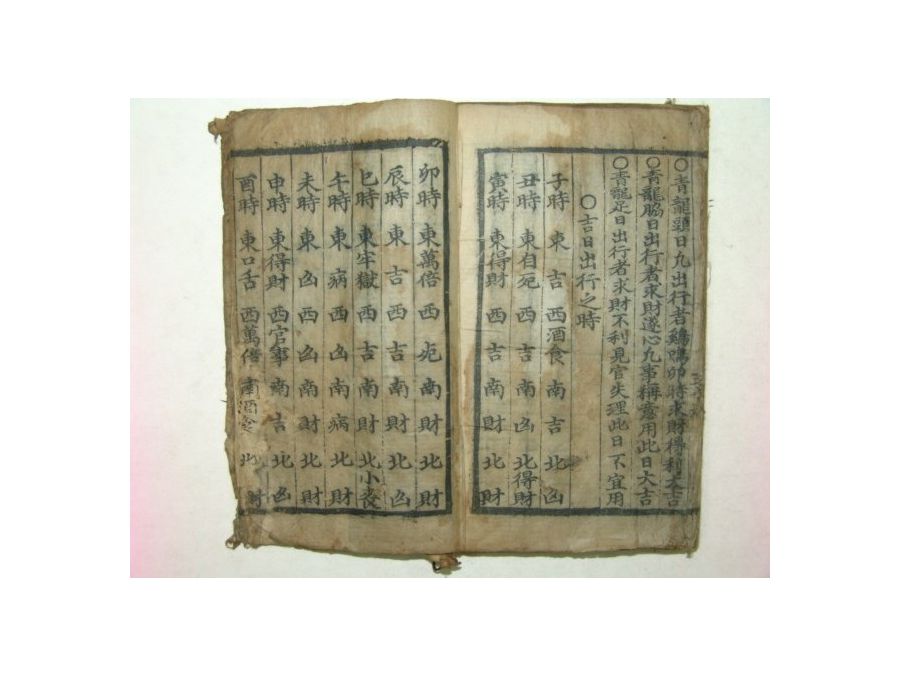 ○青龍頭日凡出行者鷄鳴卯時求財得利大吉
○青龍脇日出行者求財遂心凡事稱意用此日大吉
○青龍足日出行者求財不利見官失理此日不宜用
○吉日出行之時
子時 東吉 西酒食 南吉 北凶
丑時 東自死 西吉 南凶 北得財
寅時 東得財 西吉 南財 北財
卯時 東萬倍 西死 南財 北財
辰時 東吉 西吉 南財 北凶
巳時 東牢獄 西吉 南財 北小喪
午時 東病 西凶 南病 北財
未時 東凶 西凶 南財 北財
申時 東得財 西官事 南吉 北凶
酉時 東口舌 西萬倍 南酒食 北財